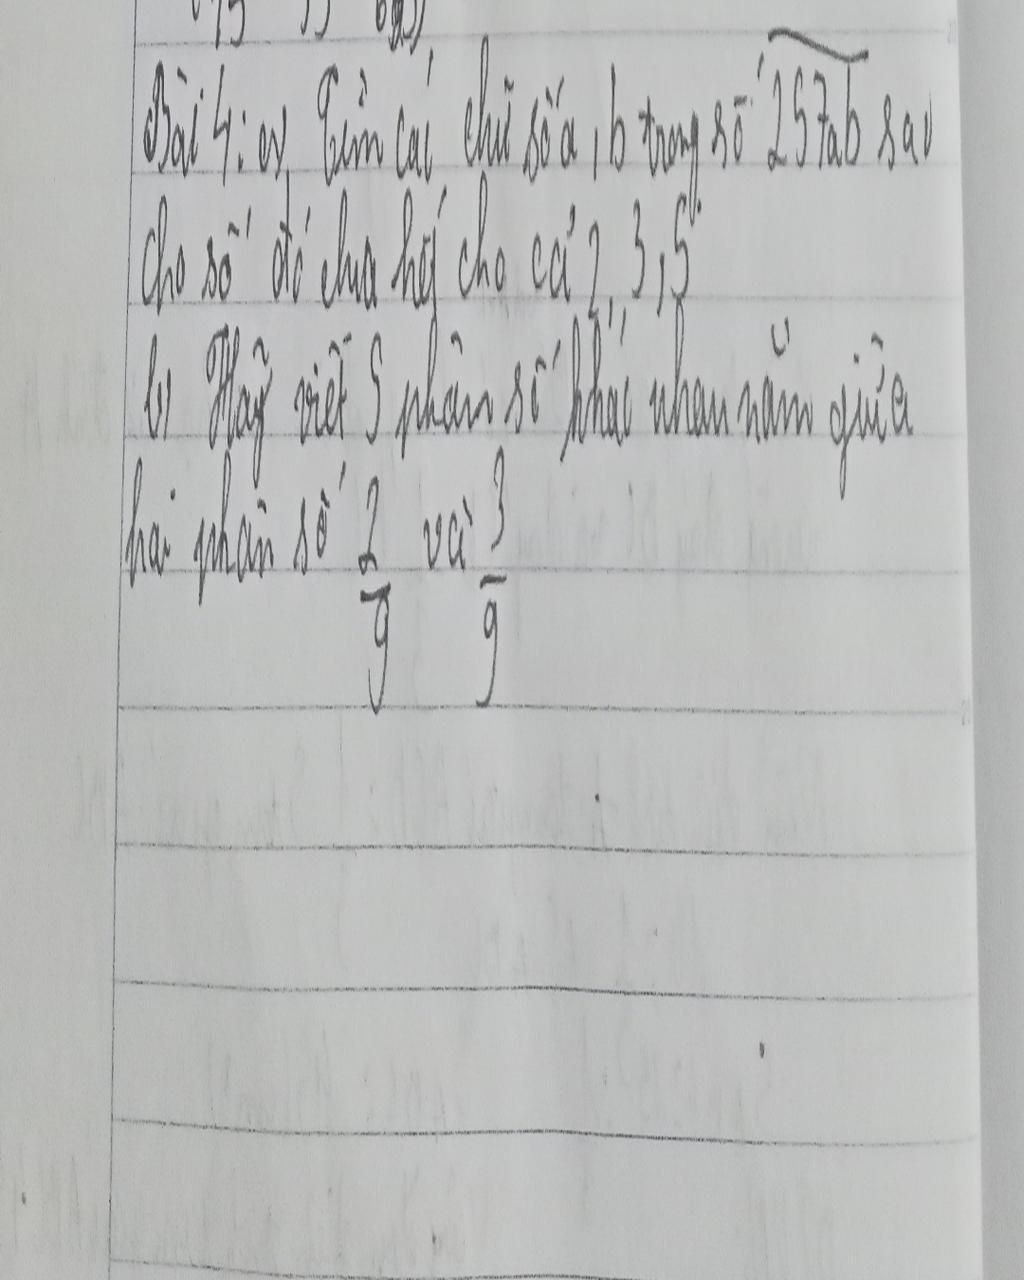 Bài 4: a, Tìm các chữ số a, b trong số 257ab sao
cho số đó chia hết cho cả 2, 3, 5
b, Hãy viết 5 phân số khác nhau nằm giữa
hai phân số 2/9 và 3/9